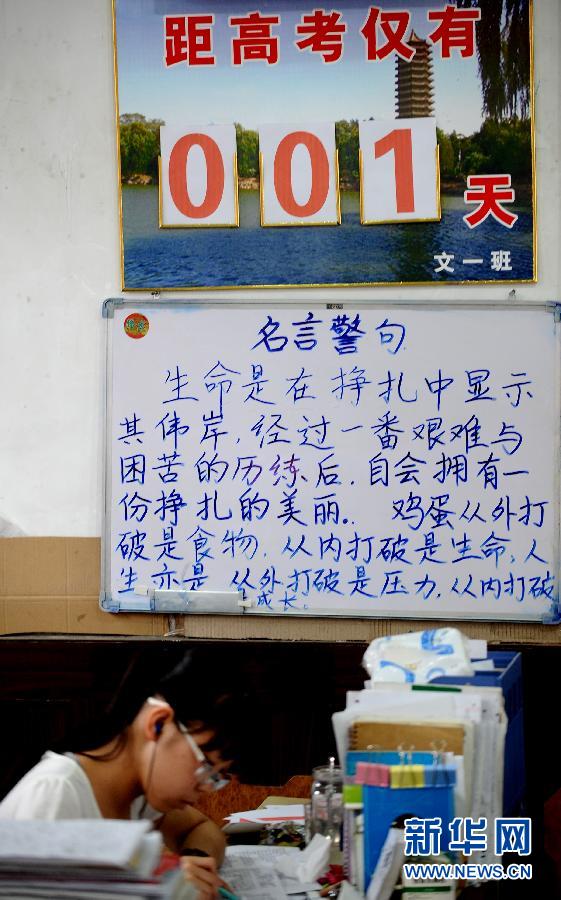 距高考仅有
001
天
文一班
名言警句
生命是在挣扎中显示
其伟岸，经过一番艰难与
困苦的历练后，自会拥有一
份挣扎的美丽。 鸡蛋从外打
破是食物，从内打破是生命，人
生亦是，从外打破是压力，从内打破
是成长。
新华网
WWW.NEWS.CN